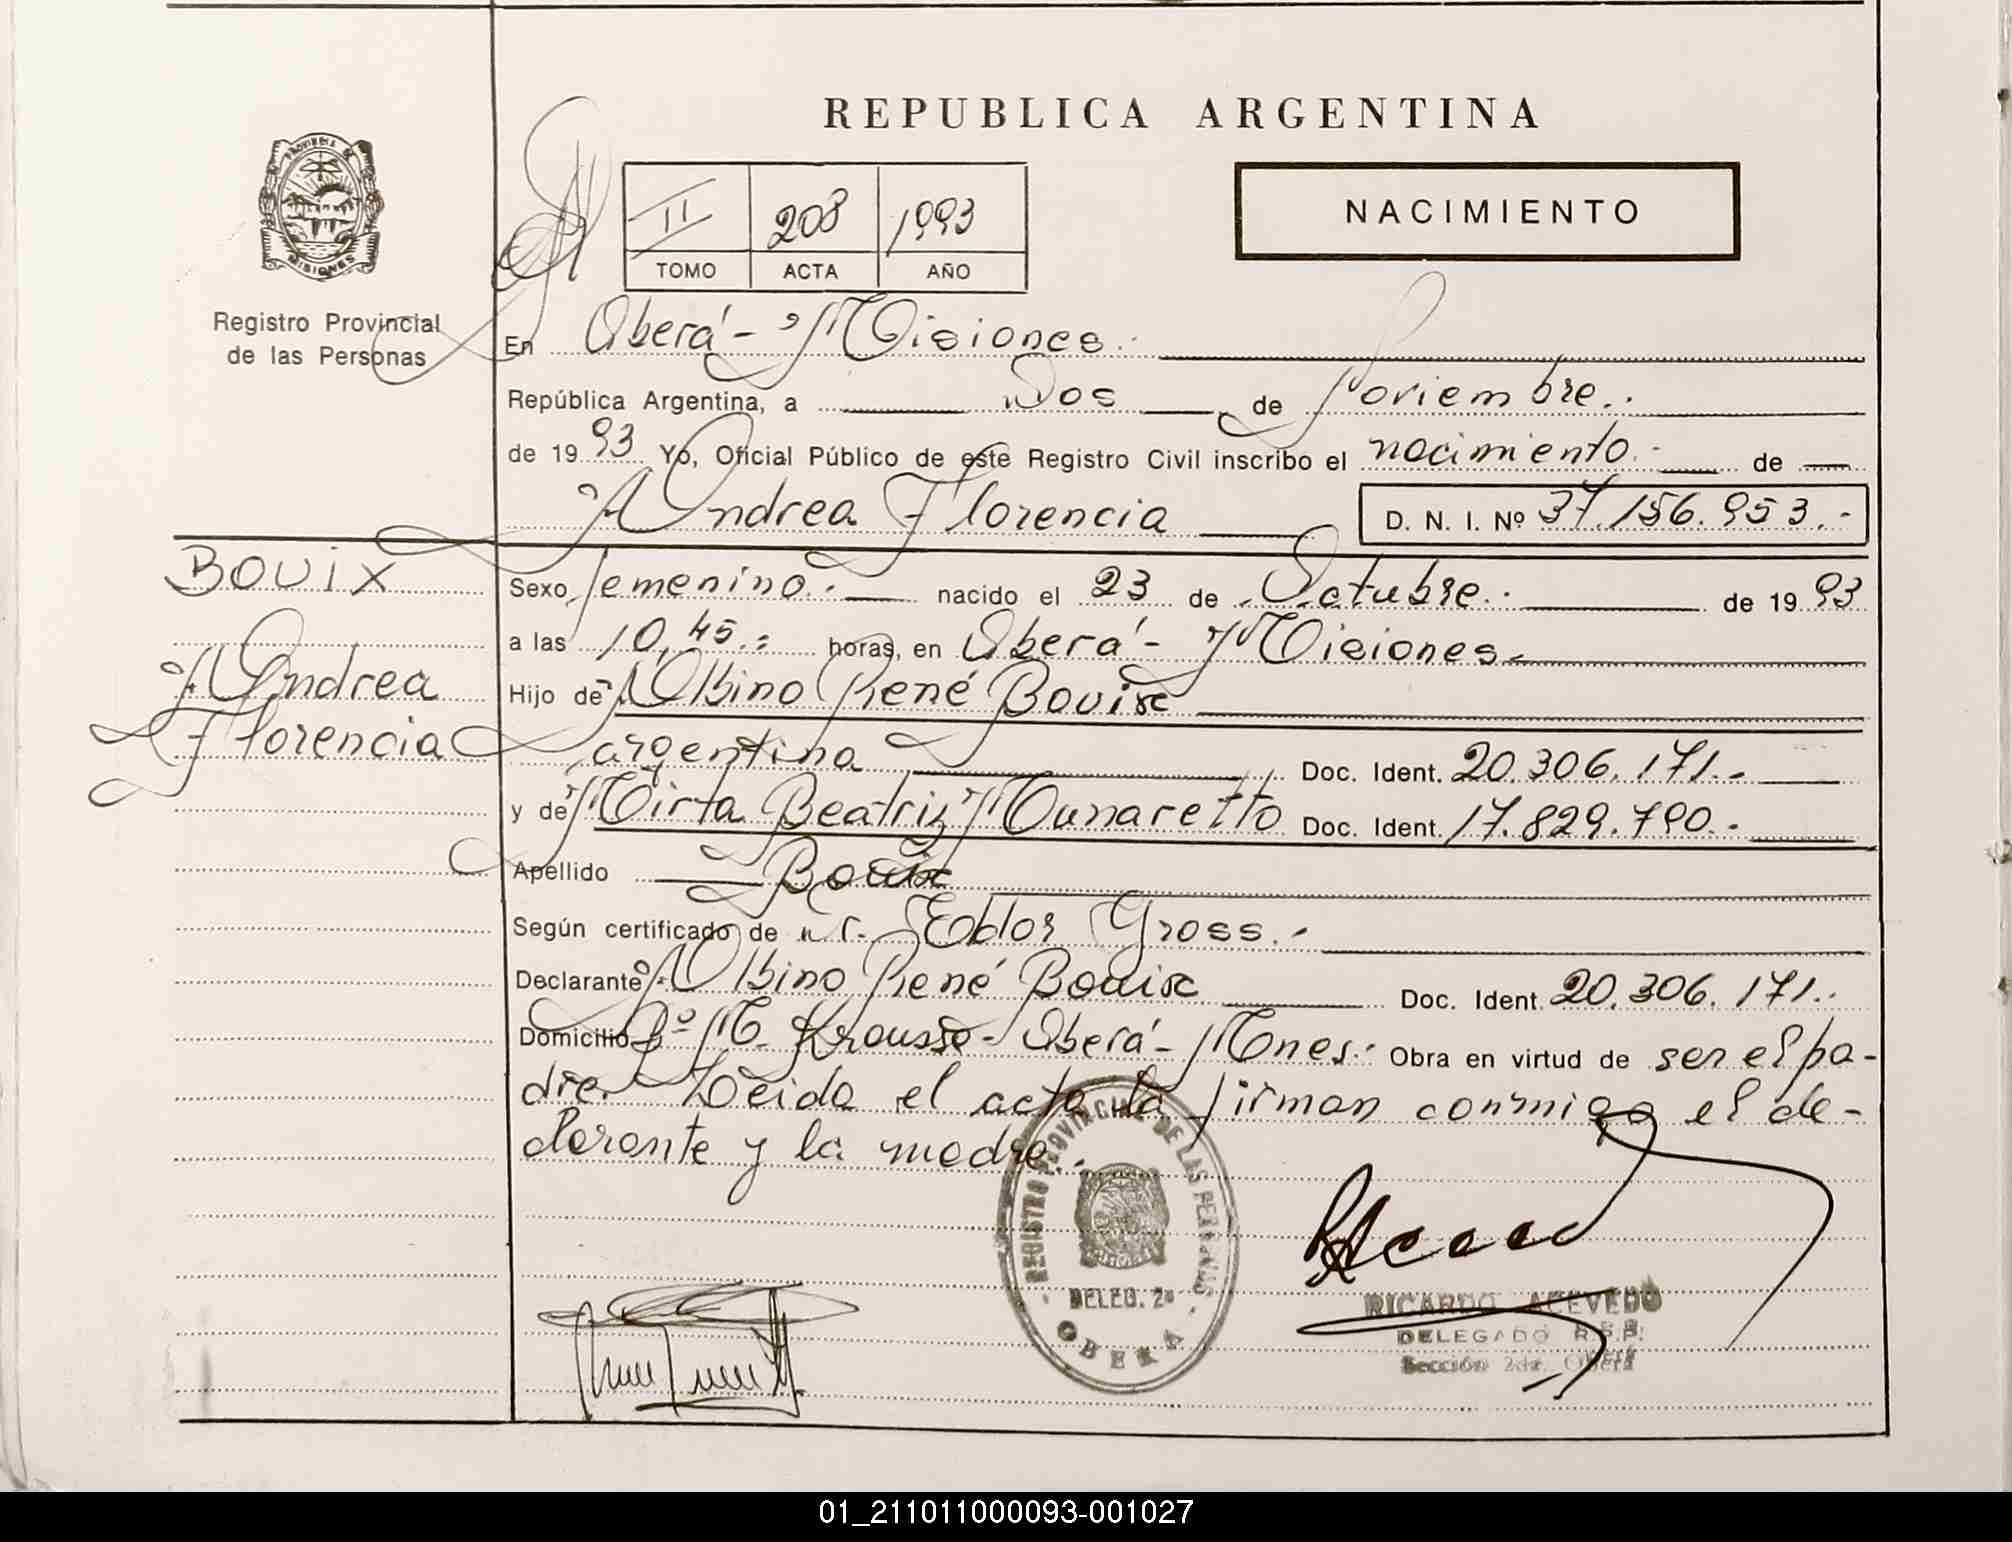 REPUBLICA ARGENTINA
PROVINCIA DE
MISIONES
Registro Provincial
de las Personas
II 208 1993
TOMO ACTA AÑO
NACIMIENTO
En Oberá - Misiones.-
República Argentina, a Dos de Noviembre.-
de 1993 Yo, Oficial Público de este Registro Civil inscribo el nacimiento.- de
Andrea Florencia D. N. I. Nº 37.156.953.-
BOUIX
Andrea
Florencia
Sexo femenino.- nacido el 23 de Octubre.- de 1993
a las 10,45.- horas, en Oberá - Misiones.-
Hijo de Albino René Bouix
argentina Doc. Ident. 20.306.171.-
y de Mirta Beatriz Munaretto Doc. Ident. 17.829.790.-
Apellido Bouix
Según certificado de Dr. Gross.-
Declarante Albino René Bouix Doc. Ident. 20.306.171.-
Domicilio Bº M. Krausse - Oberá - Mnes.- Obra en virtud de ser el pa-
dre. Leida el acta la firman conmigo el de-
clarante y la madre.-
REGISTRO PROVINCIAL DE LAS PERSONAS
DELEG. 2ª
OBERA
RICARDO ACEVEDO
DELEGADO R.P.P.
Sección 2da. Oberá
01_211011000093-001027